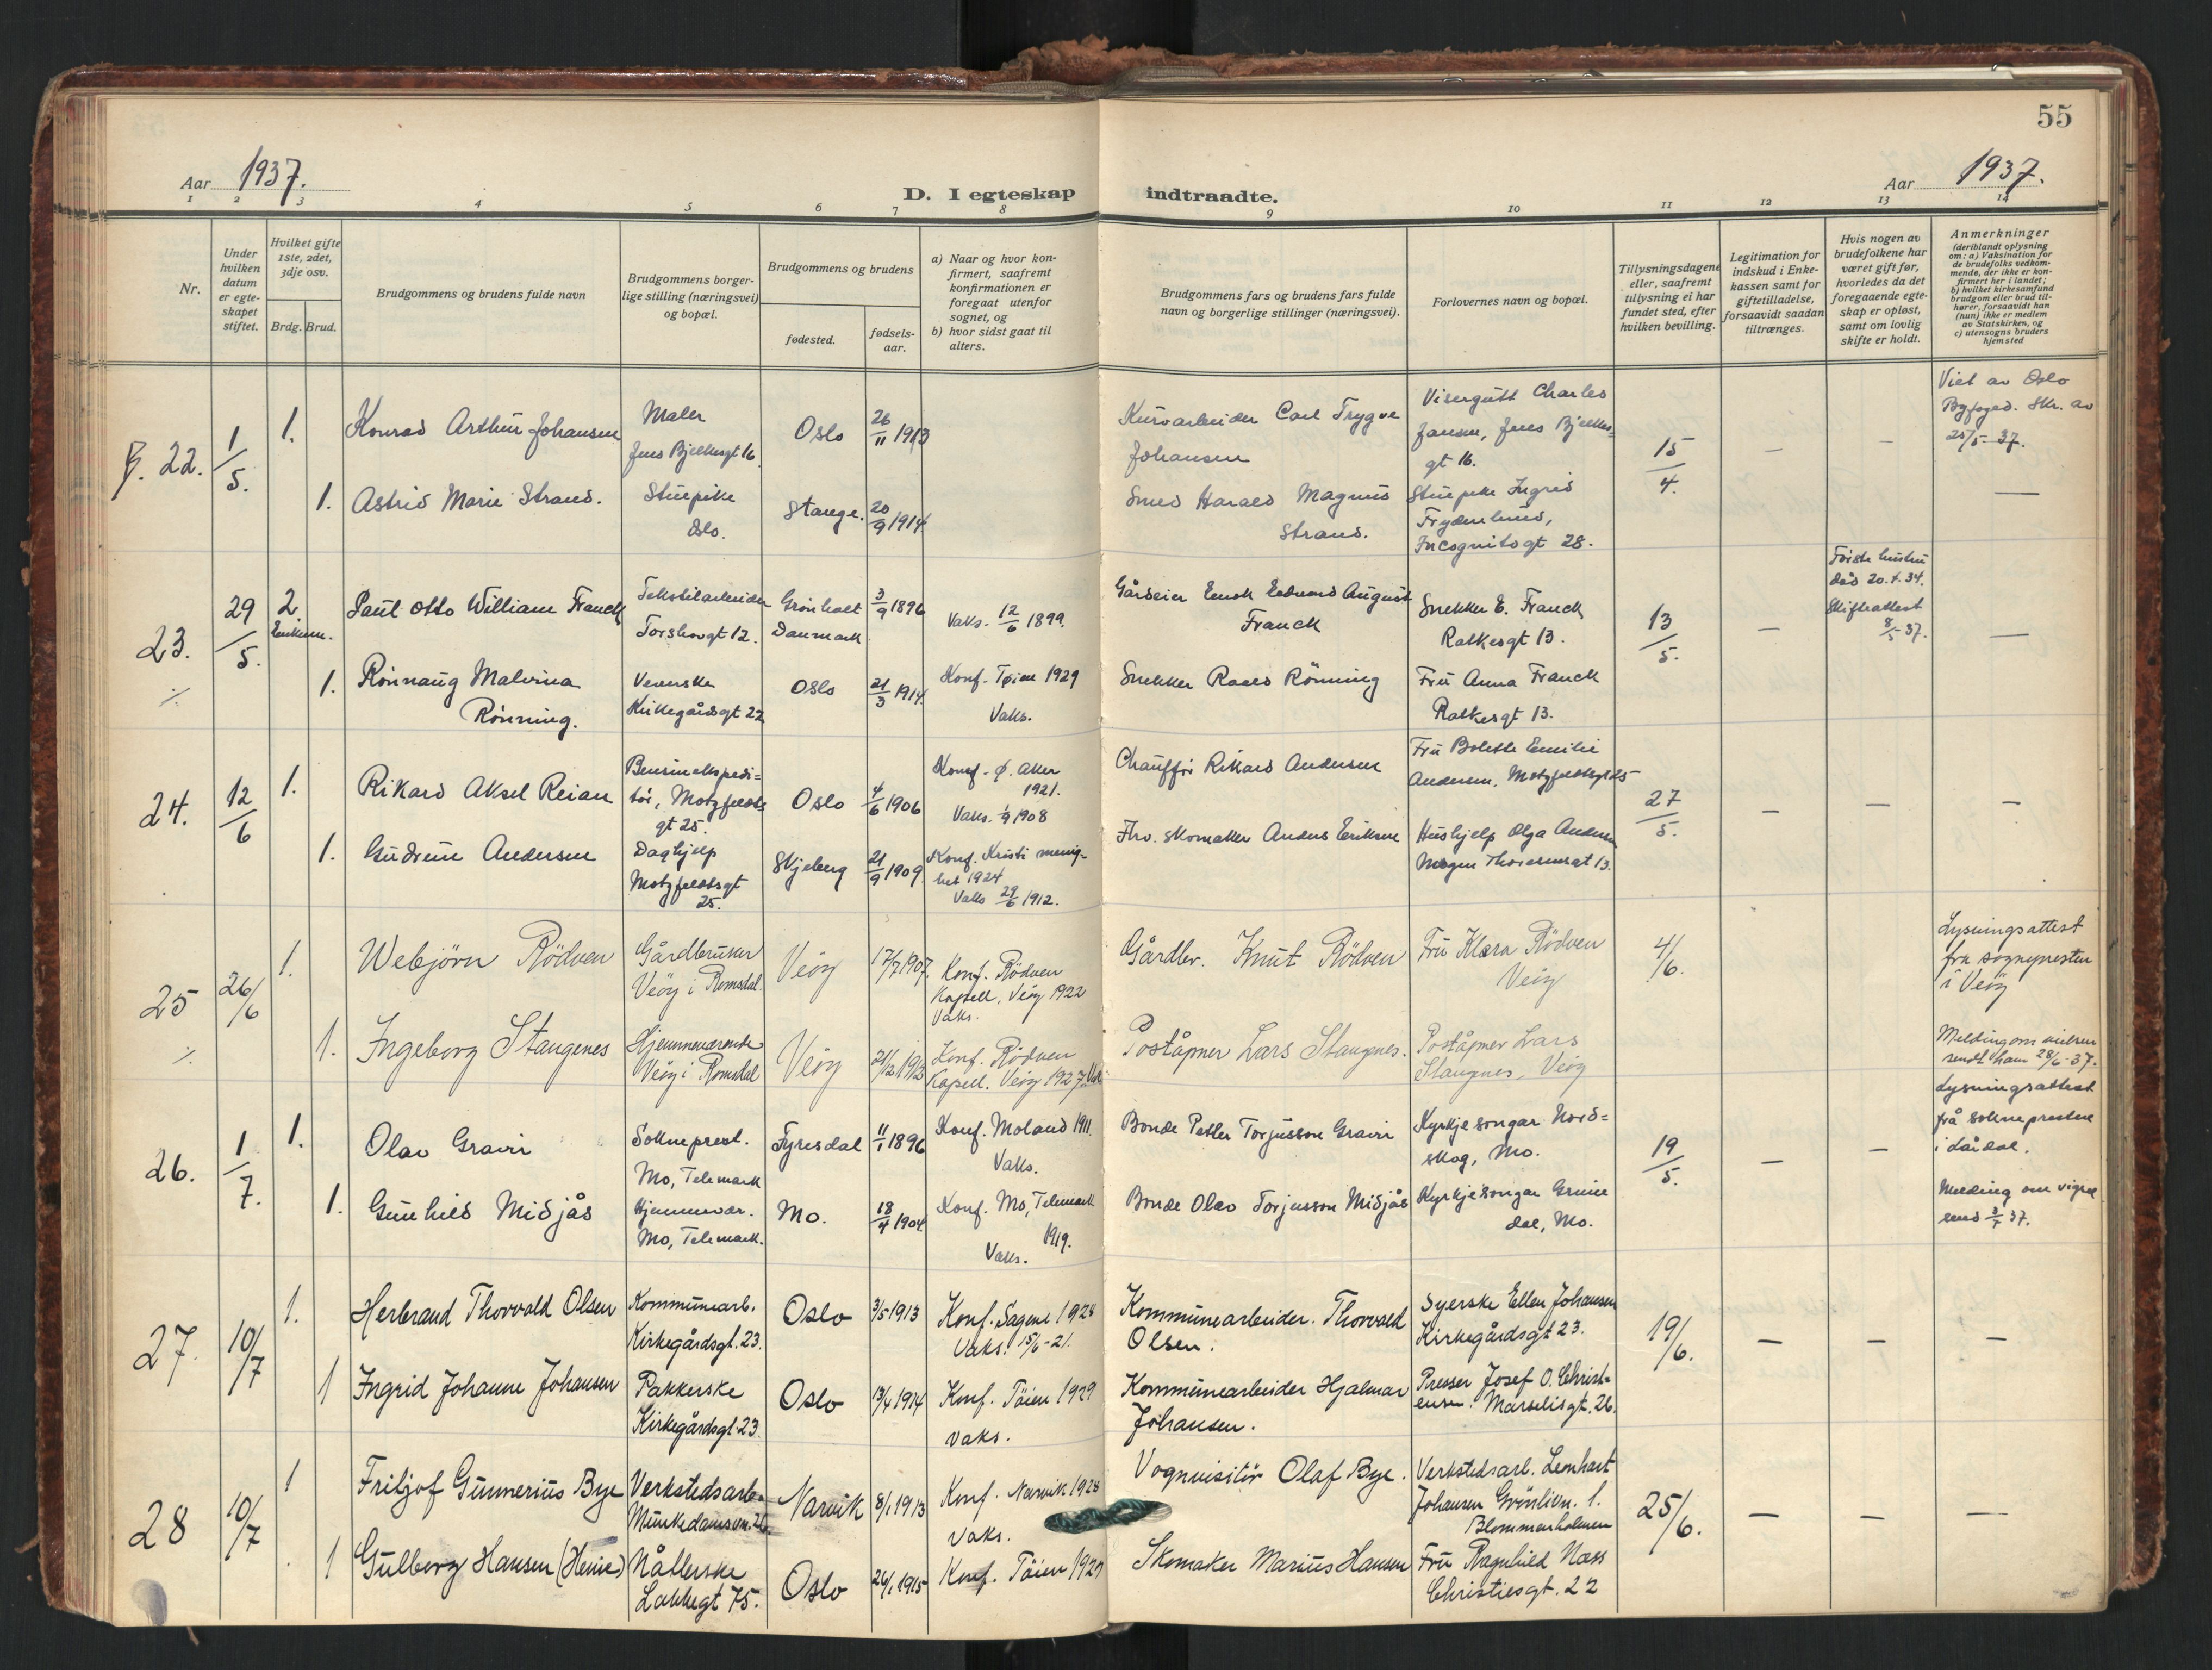 55
Aar 1937.
D. I egteskap indtraadte.
Aar 1937.
1 2 3 4 5 6 7 8 9 10 11 12 13 14
Nr.
Under hvilken datum er egteskapet stiftet.
Hvilket gifte 1ste, 2det, 3dje osv.
Brdg. Brud.
Brudgommens og brudens fulde navn
Brudgommens borgerlige stilling (næringsvei) og bopæl.
Brudgommens og brudens
fødested.
fødselsaar.
a) Naar og hvor konfirmert, saafremt konfirmationen er foregaat utenfor sognet, og
b) hvor sidst gaat til alters.
Brudgommens fars og brudens fars fulde navn og borgerlige stillinger (næringsvei).
Forlovernes navn og bopæl.
Tillysningsdagene eller, saafremt tillysning ei har fundet sted, efter hvilken bevilling.
Legitimation for indskud i Enkekassen samt for giftetilladelse, forsaavidt saadan tiltrænges.
Hvis nogen av brudefolkene har været gift før, hvorledes da det foregaaende egteskap er opløst, samt om lovlig skifte er holdt.
Anmerkninger
(deriblandt oplysning om: a) Vaksination for de brudefolks vedkommende, der ikke er konfirmert her i landet; b) hvilket kirkesamfund brudgom eller brud tilhører, forsaavidt han (hun) ikke er medlem av Statskirken, og c) utensogns bruders hjemsted
22. 1/5. 1. Konrad Arthur Johansen
Maler
Jens Bjelkesgt 16.
Oslo 26/11 1913
Kurvarbeider Carl Trygve
Johansen
Visergutt Charles
Jansen, Jens Bjelkes=
gt 16.
15/4. — —
Viet av Oslo
Byfoged. Skr. av
25/5-37.
1. Astrid Marie Strand.
Stuepike
Oslo.
Stange. 20/9 1914
Smed Harald Magnus
Strand.
Stuepike Ingrid
Frydenlund,
Incognitogt 28.
—
23. 29/5. 2. Enkem. Paul Otto William Franck
Tekstilarbeider
Torshovgt 12.
Grönholt
Danmark
3/9 1896
Vaks. 12/6 1899.
Gårdeier Enok Edvard August
Franck
Snekker E. Franck
Ratkesgt 13.
13/5. —
Første hustru
död 20.4.34.
Skifteattest
8/5-37.
—
1. Rönnaug Malvina
Rönning.
Veverske
Kirkegårdsgt 22
Oslo 21/3 1914.
Konf. Tøien 1929
Vaks.
Snekker Roald Rönning
Fru Anna Franck
Ratkesgt 13.
24. 12/6 1. Rikard Aksel Reian
Bensinekspedi=
tør, Motzfeldts
gt 25.
Oslo 4/6 1906
Konf. Ø. Aker
1921.
Vaks. 1/9 1908
Chauffør Rikard Andersen
Fru Bolette Emilie
Andersen. Motzfeldtsgt 25
27/5. — — —
1. Gudrun Andersen
Daghjelp
Motzfeldtsgt
25.
Skjeberg 21/9 1909
Konf. Kristi menig-
het 1924
Vaks 29/6 1912.
Fhv. skomaker Anders Eriksen
Hushjelp Olga Andersen
Mogens Thorsensgt 13.
25 26/6 1. Webjörn Rödven
Gårdbruker
Veöy i Romsdal.
Veöy 17/7 1907.
Konf. Rödven
Kapell, Veöy 1922
Vaks.
Gårdbr. Knut Rödven
Fru Klara Rödven
Veöy
4/6.
Lysningsattest
fra sognepresten
i Veöy
1. Ingeborg Stangenes
Hjemmeværende
Veöy i Romsdal
Veöy 21/12 1913
Konf. Rödven
Kapell. Veöy 1927. Vak
Poståpner Lars Stangnes.
Poståpner Lars
Stangnes, Veöy
Melding om vielsen
sendt ham 28/6-37.
26. 1/7. 1. Olav Gravir
Sokneprest.
Mo, Telemark
Fyresdal 11/1 1896
Konf. Moland 1911.
Vaks.
Bonde Petter Torjusson Gravir
Kyrkjesongar Nord=
skog, Mo.
19/5. — —
Lysningsattest
frå soknepresten
i Lårdal.
1. Gunhild Midjås
Hjemmevær.
Mo, Telemark.
Mo. 18/4 1904
Konf. Mo, Telemark
1919.
Vaks.
Bonde Olav Torjusson Midjås
Kyrkjesongar Grune
dal, Mo.
Melding om vigsel
send 3/7 37.
27. 10/7 1. Herbrand Thorvald Olsen
Kommunearb.
Kirkegårdsgt. 23.
Oslo 3/5 1913
Konf. Sagene 1928
Vaks. 15/6-21.
Kommunearbeider. Thorvald
Olsen.
Syerske Ellen Johansen
Kirkegårdsgt 23.
19/6. — — —
1 Ingrid Johanne Johansen
Pakkerske
Kirkegårdsgt. 23.
Oslo 13/4 1914
Konf. Töien 1929
vaks.
Kommunearbeider Hjalmar
Johansen.
Presser Josef O. Christ=
ensen. Marselisgt. 26.
28 10/7 1 Fritjof Gunnerius Bye
Verkstedsarb.
Munkedamsvn. 26.
Narvik 8/1 1913
Konf. Narvik 1928
vaks.
Vognvisitör Olaf Bye.
Verkstedsarb. Lenhart
Johansen Grönlivn. 1.
Blommenholmen
25/6. — — —
1 Gulborg Hansen (Henie)
Nåtlerske
Lakkegt 75.
Oslo 26/1 1915
Konf. Töien 1929
Skomaker Marius Hansen
Fru Ragnhild Næss
Christiesgt. 22